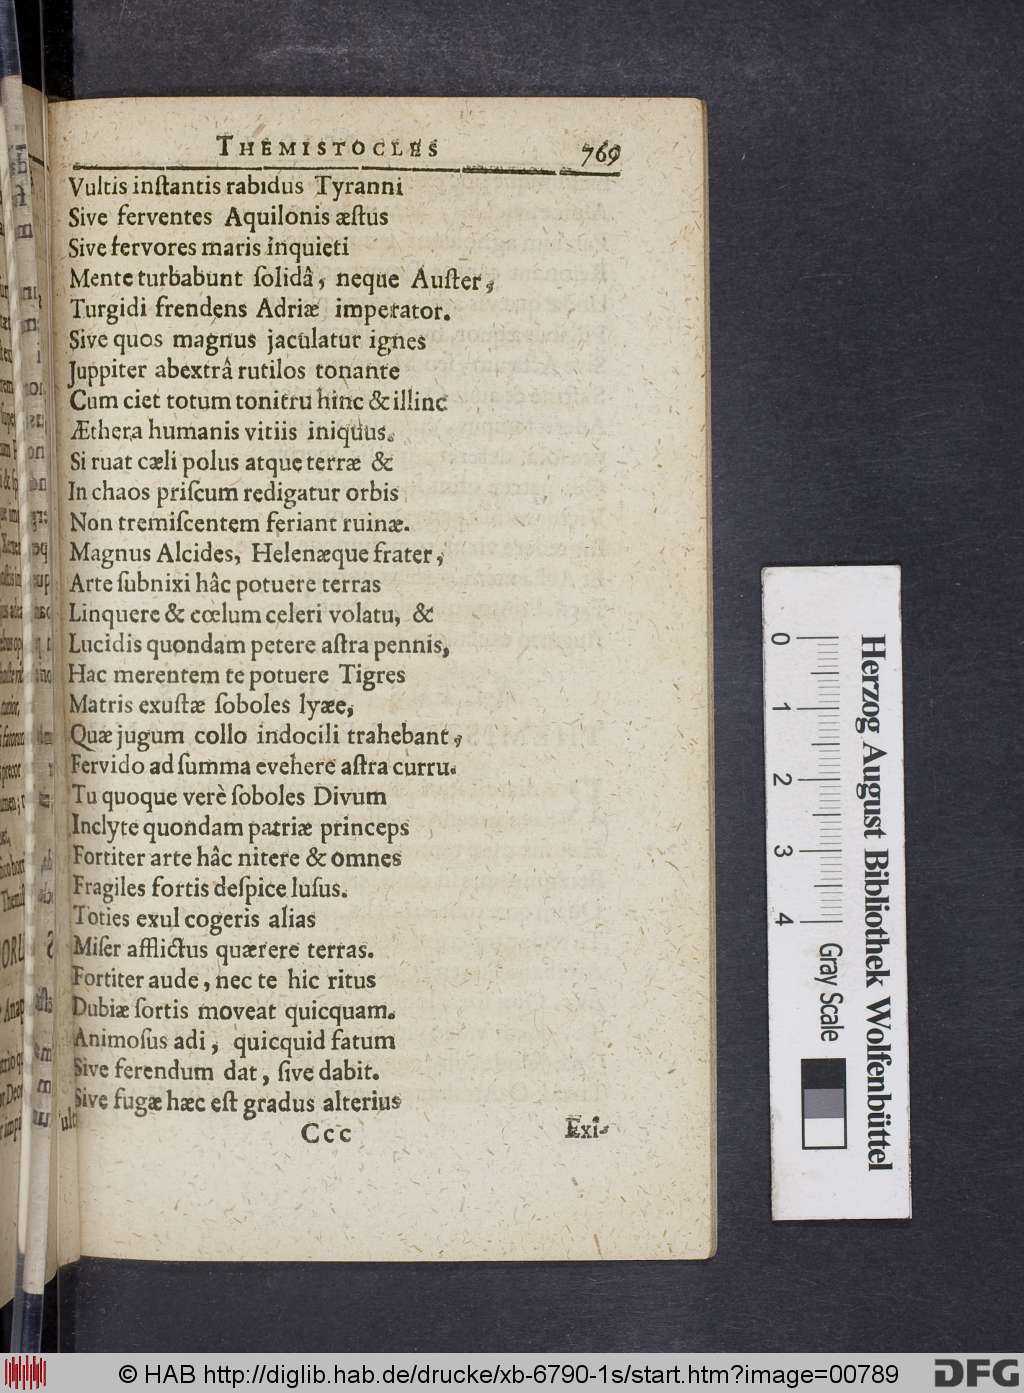 THEMISTOCLES 769
Vultis inſtantis rabidus Tyranni
Sive ferventes Aquilonis æſtus
Sive fervores maris inquieti
Mente turbabunt ſolidâ, neque Auſter,
Turgidi frendens Adriæ imperator.
Sive quos magnus jaculatur ignes
Juppiter abextrâ rutilos tonante
Cum ciet totum tonitru hinc & illinc
Æthera humanis vitiis iniquus.
Si ruat cæli polus atque terræ &
In chaos priſcum redigatur orbis
Non tremiſcentem feriant ruinæ.
Magnus Alcides, Helenæque frater,
Arte ſubnixi hâc potuere terras
Linquere & cœlum celeri volatu, &
Lucidis quondam petere aſtra pennis,
Hac merentem te potuere Tigres
Matris exuſtæ ſoboles lyæe,
Quæ jugum collo indocili trahebant,
Fervido ad ſumma evehere aſtra curru.
Tu quoque verè ſoboles Divum
Inclyte quondam patriæ princeps
Fortiter arte hâc nitere & omnes
Fragiles fortis deſpice luſus.
Toties exul cogeris alias
Miſer afflictus quærere terras.
Fortiter aude, nec te hic ritus
Dubiæ ſortis moveat quicquam.
Animoſus adi, quicquid fatum
Sive ferendum dat, ſive dabit.
Sive fugæ hæc eſt gradus alterius
Ccc Exi-
0 1 2 3 4 Gray Scale
Herzog August Bibliothek Wolfenbüttel
© HAB http://diglib.hab.de/drucke/xb-6790-1s/start.htm?image=00789
DFG